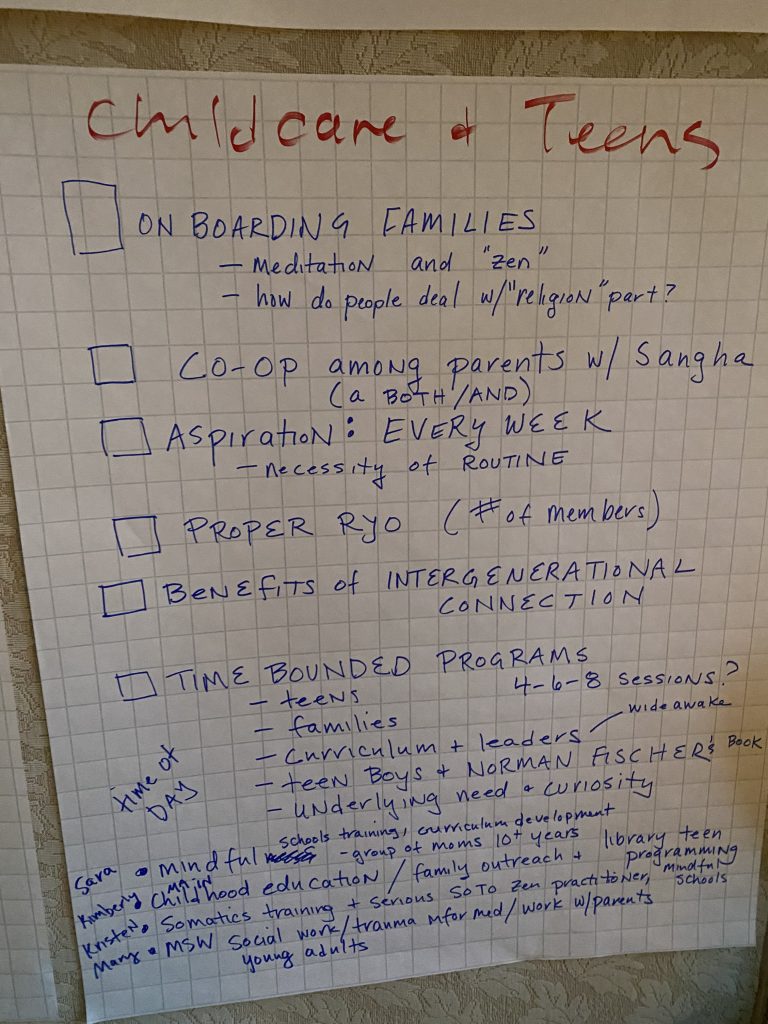 Childcare + Teens
ON BOARDING FAMILIES
- Meditation and "Zen"
- how do people deal w/"religion" part?
CO-OP among parents w/ Sangha
(a BOTH/AND)
ASpiratioN: EVERY WEEK
- necessity of ROUTINE
PROPER RYO (# of members)
BENEfitS of INTERGENERATIONAL
CONNECTION
TIME BOUNDED PROGRAMS
4-6-8 SESSIONS?
- teens
- families
wide awake
- Curriculum + leaders
- teen Boys + NORMAN FISCHER'S Book
- UNDERLYING need + curiosity
Time of
DAY
schools training, curriculum development
Sara • Mindful - group of moms 10+ years
major
Kimberly • Childhood education / family outreach + library teen programming
Kristen • Somatics training + serious SOTO Zen practitoner, mindful schools
Mary • MSW Social work/trauma informed/work w/parents
young adults